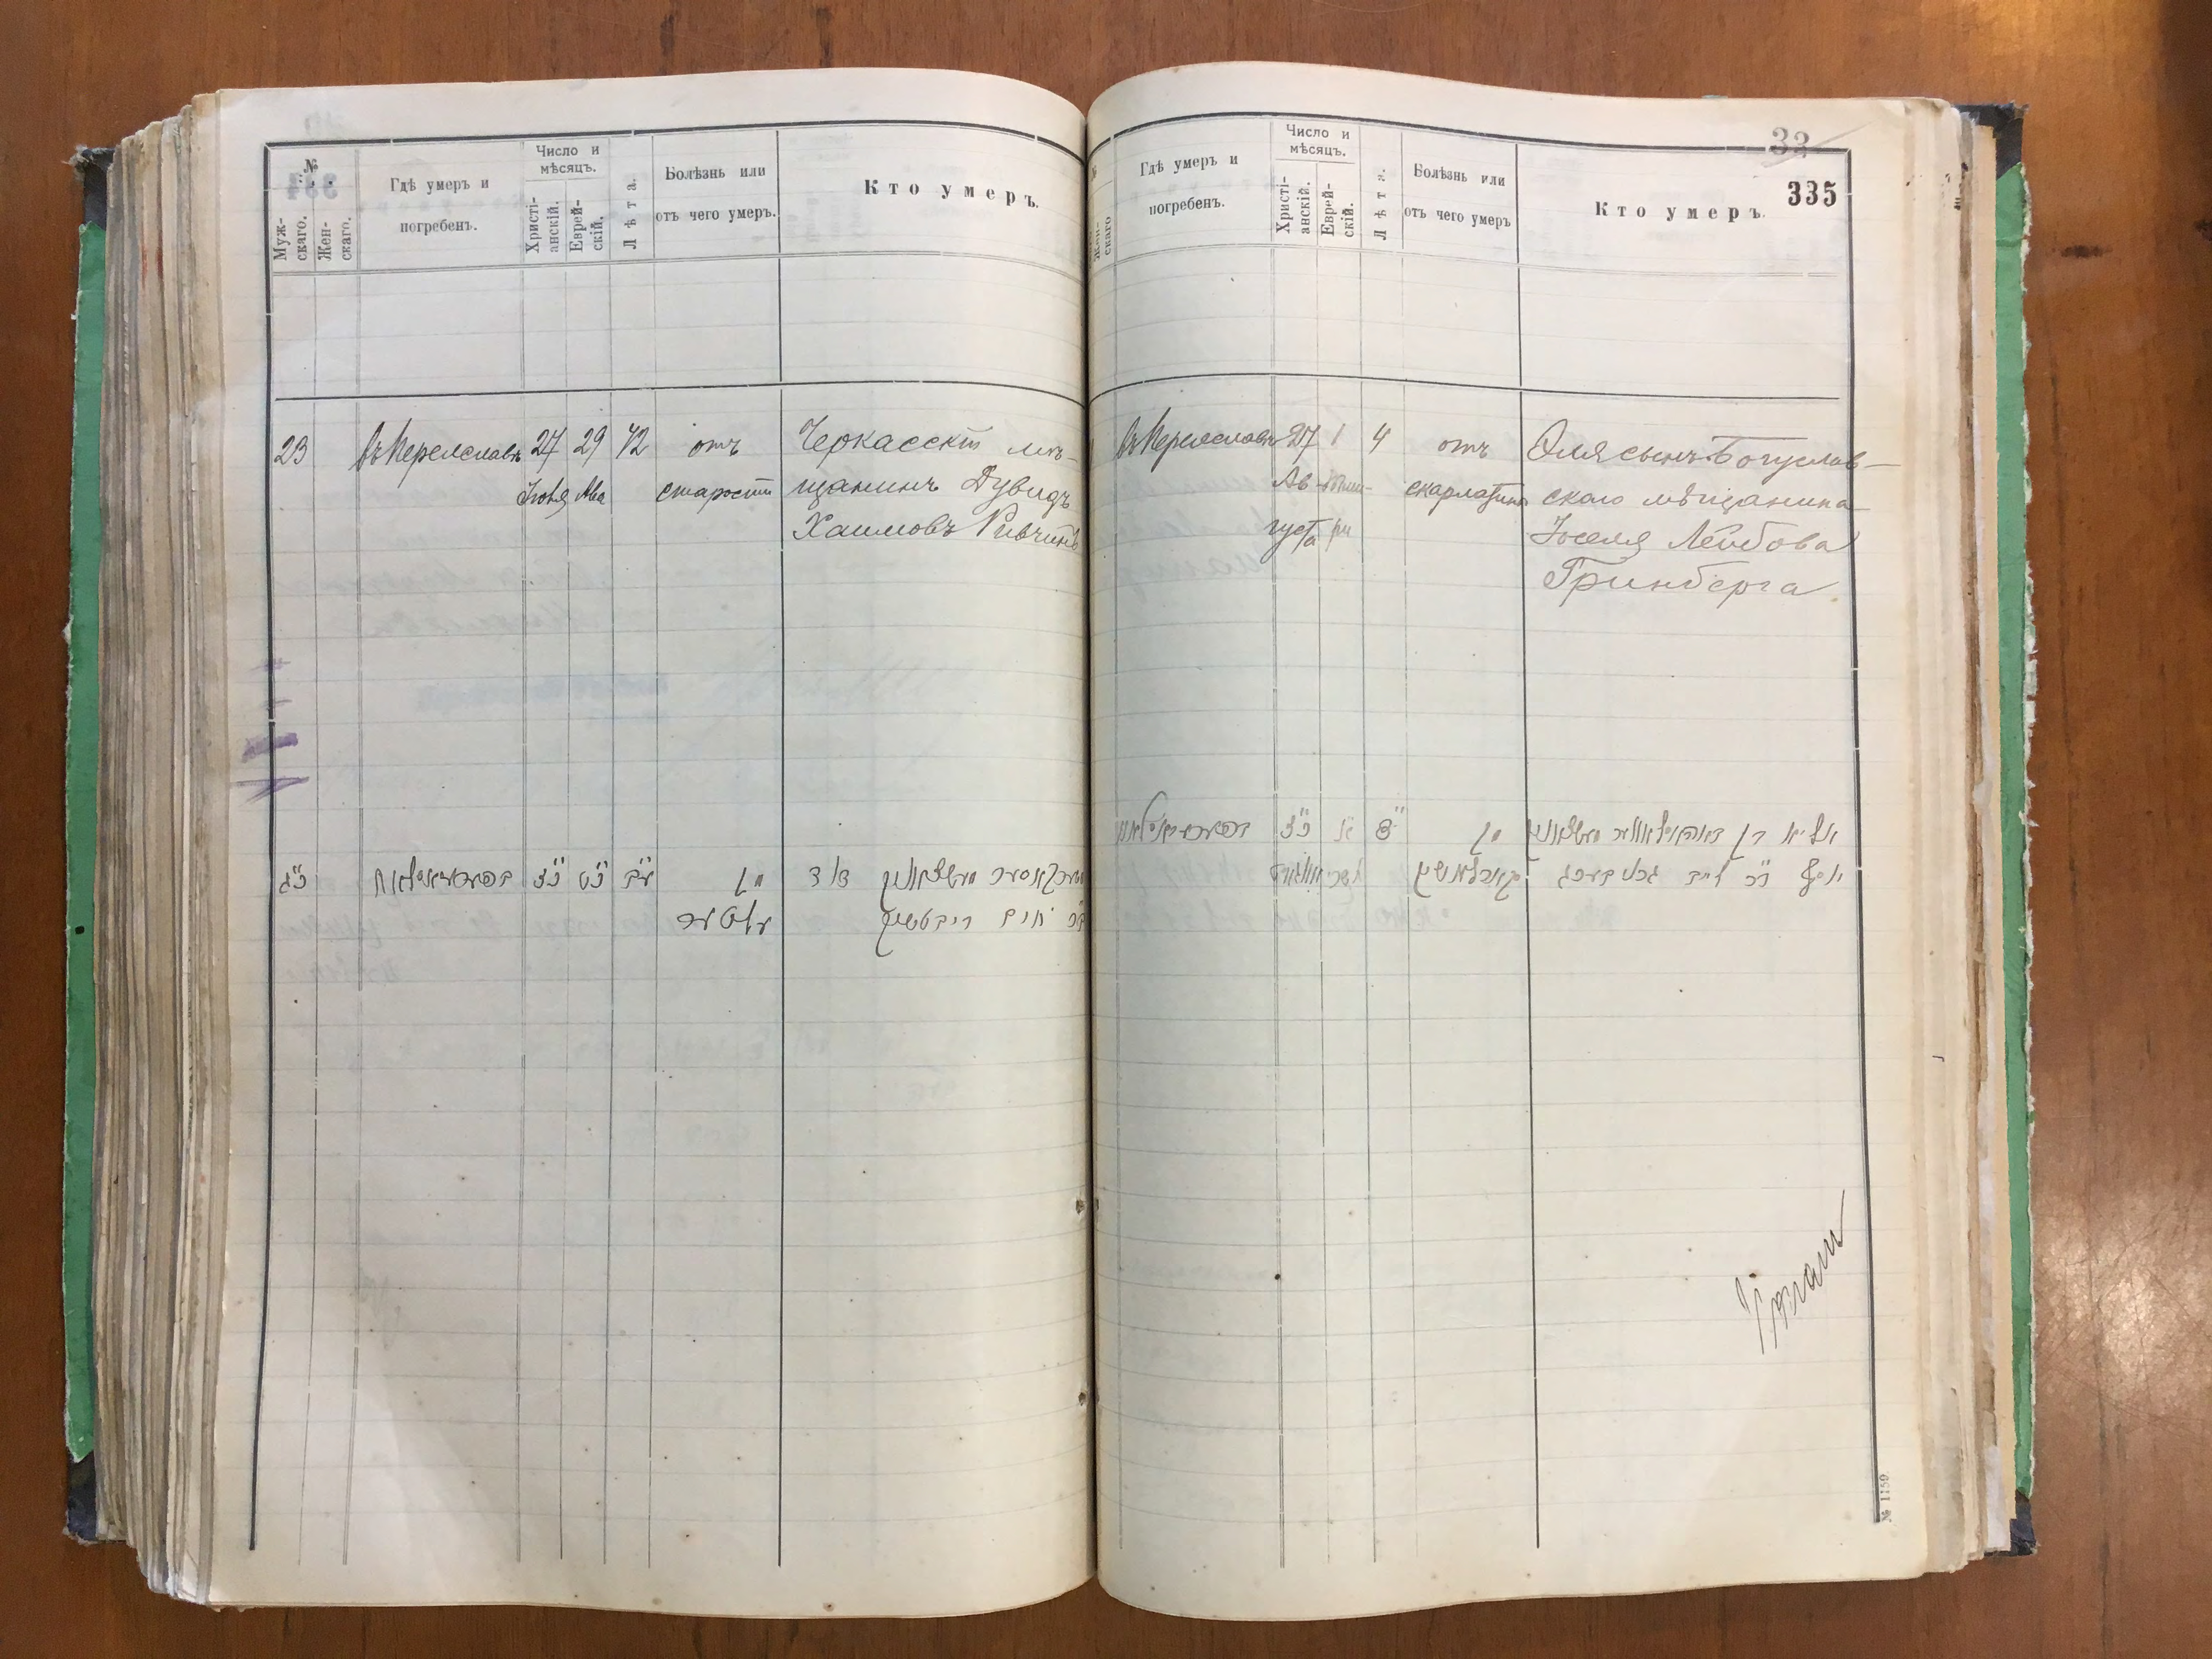 №
Муж-
скаго.
Жен-
скаго.
Гдѣ умеръ и
погребенъ.
Число и
мѣсяцъ.
Христі-
анскій.
Еврей-
скій.
Лѣта.
Болѣзнь или
отъ чего умеръ.
Кто умеръ.
23
въ Переяславѣ
27
29
72
отъ
старости
Ава
Черкасскій мѣ-
щанинъ Дувидъ
Хаимовъ Ривчинъ
כ״ג
כ״ז
כ״ט
ע״ב
פון
עלטער
דוד
ב״ר חיים ריבטשין
33
335
Жен-
скаго
Гдѣ умеръ и
погребенъ.
Число и
мѣсяцъ.
Христі-
анскій.
Еврей-
скій.
Лѣта.
Болѣзнь или
отъ чего умеръ
Кто умеръ.
въ Переяславѣ
27
Ав-
густа
1
4
отъ
скарлатины
сынъ Богуслав-
скаго мѣщанина
Іоселя Лейбова
Гринберга.
כ״ז
א
פון
יוסף ב״ר לייב גרינבערג
№ 1159